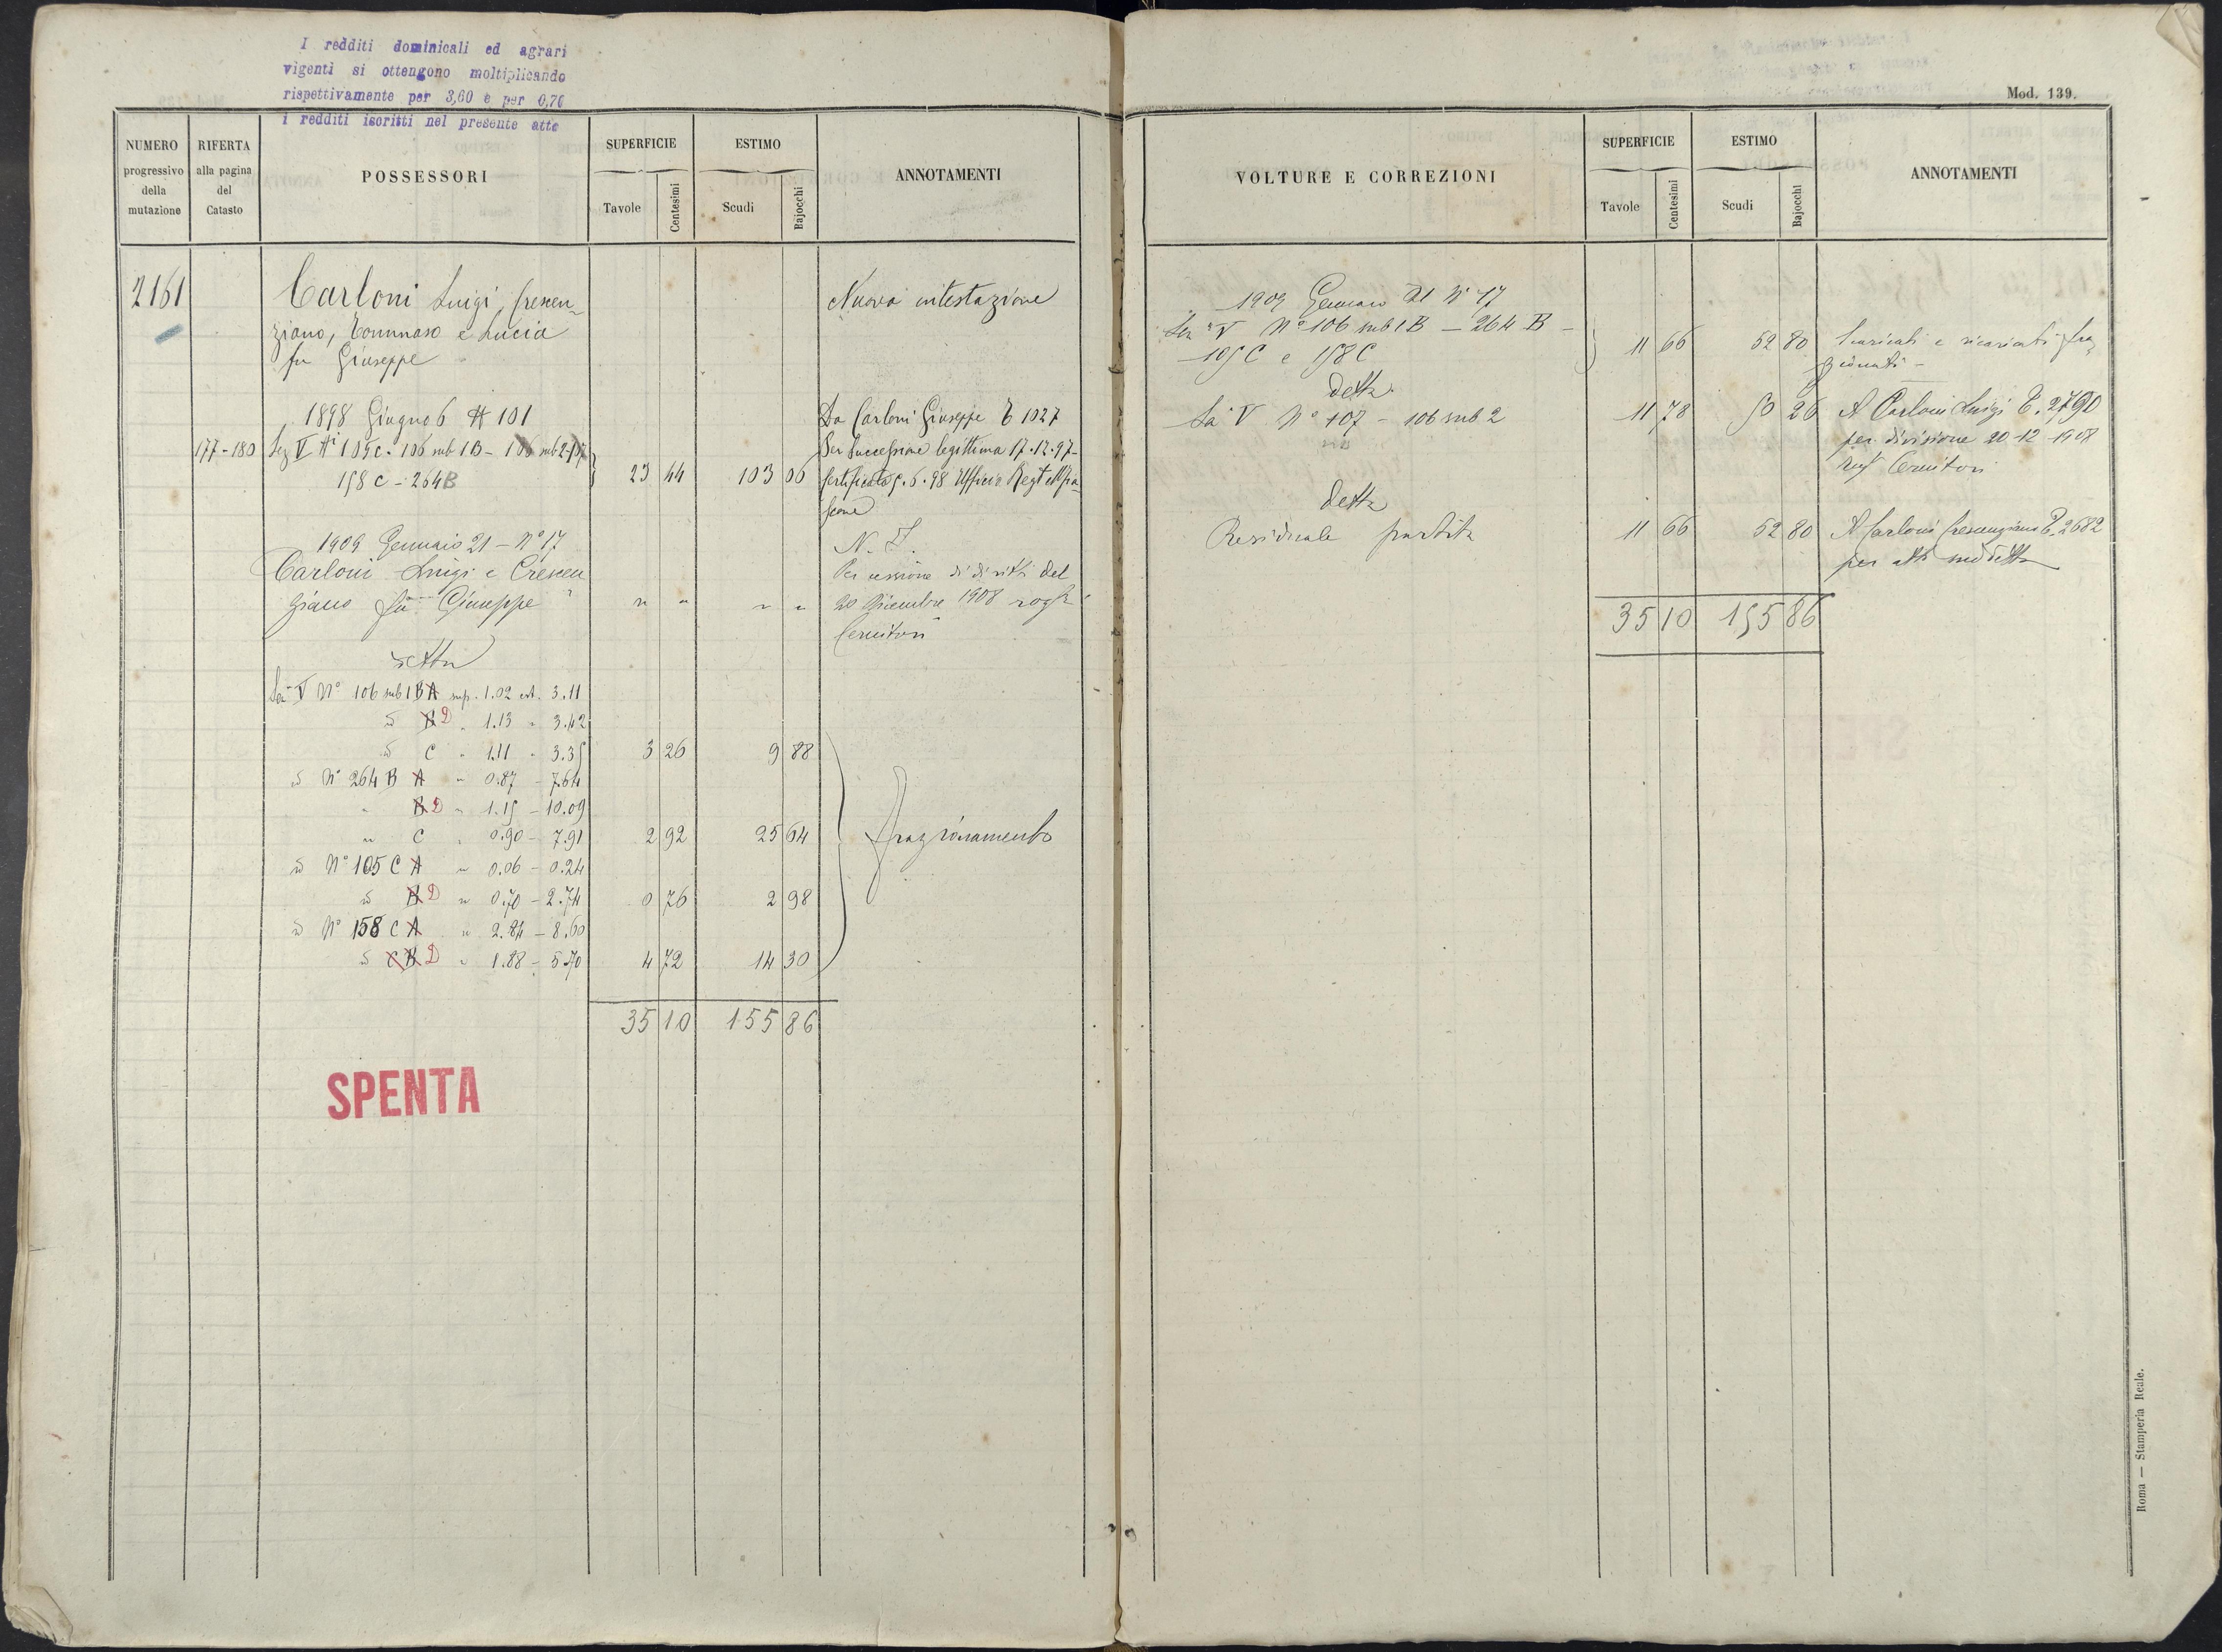 I redditi dominicali ed agrari
vigenti si ottengono moltiplicando
rispettivamente per 3,60 e per 0,70
i redditi iscritti nel presente atto
NUMERO progressivo della mutazione
RIFERTA alla pagina del Catasto
POSSESSORI
SUPERFICIE
Tavole Centesimi
ESTIMO
Scudi Bajocchi
ANNOTAMENTI
2161 Carloni Luigi, Crescen- Nuova intestazione
ziano, Tommaso e Lucia
fu Giuseppe
1898 Giugno 6 N 101 Da Carloni Giuseppe P 1027
177-180 Sez V Ni 105c - 106 sub 1B - 106 sub 2 - 107 Per Successione legittima 17.12.97
158 C - 264B 23 44 103 06 Certificato 5.6.98 Ufficio Regt
1909 Gennaio 21 - N° 17 N. I.
Carloni Luigi e Crescen Per cessione di diritti del
ziano fu Giuseppe " " " " 20 Dicembre 1908 rog
Cernitori
detta
Sez V N° 106 sub 1 B A sup. 1.02 est. 3.11
id B D " 1.13 " 3.42
id C " 1.11 " 3.35 3 26 9 88
id N° 264 B A " 0.87 - 7.64
" B D " 1.15 - 10.09
" C " 0.90 - 7.91 2 92 25 64 frazionamento
id N° 105 C A " 0.06 - 0.24
id B D " 0.70 - 2.74 0 76 2 98
id N° 158 C A " 2.84 - 8.60
id C B D " 1.88 - 5.70 4 72 14 30
35 10 155 86
SPENTA
Mod. 139.
VOLTURE E CORREZIONI
SUPERFICIE
Tavole Centesimi
ESTIMO
Scudi Bajocchi
ANNOTAMENTI
1909 Gennaio 21 N° 17
Sez V N° 106 sub 1 B - 264 B -
105 C e 158 C 11 66 52 80 Scaricati e ricaricati fra
zionati -
detta
Sez V N° 107 - 106 sub 2 11 78 50 26 A Carloni Luigi P. 2790
per divisione 20-12-1908
rog Cernitori
detta
Residuale partita 11 66 52 80 A Carloni Crescenziano P. 2682
per atto suddetto
35 10 155 86
Roma — Stamperia Reale.